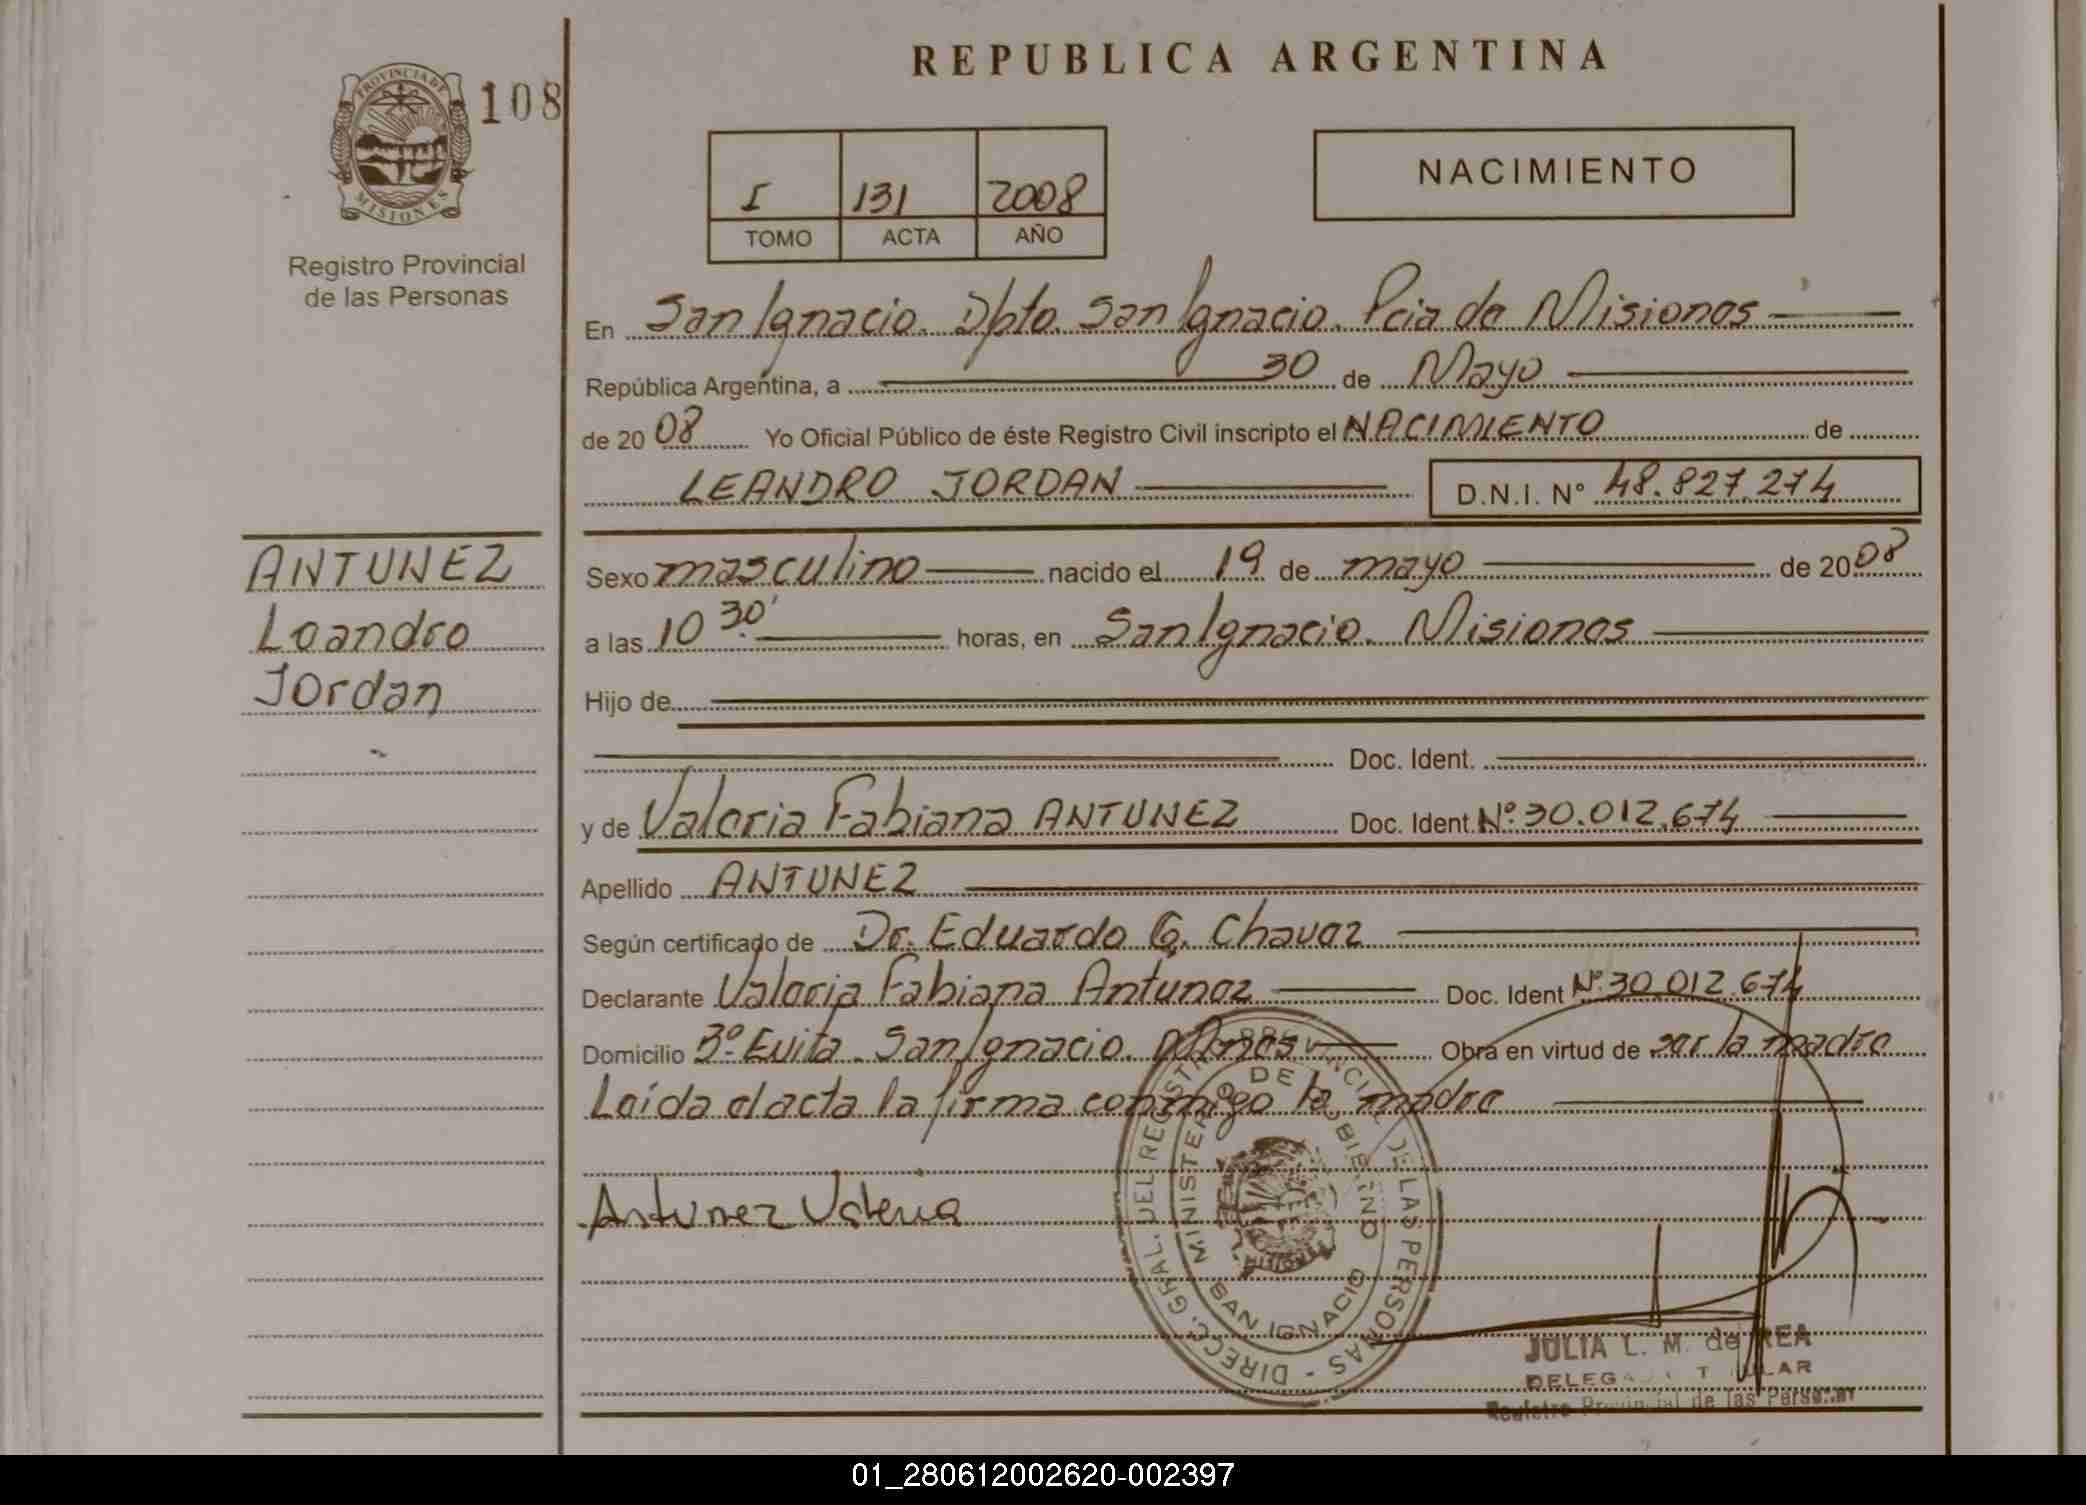 REPUBLICA ARGENTINA
PROVINCIA DE
MISIONES
108
Registro Provincial
de las Personas
I 131 2008
TOMO ACTA AÑO
NACIMIENTO
En San Ignacio. Dpto. San Ignacio. Pcia de Misiones
República Argentina, a 30 de Mayo
de 2008 Yo Oficial Público de éste Registro Civil inscripto el NACIMIENTO de
LEANDRO JORDAN D.N.I. N° 48.827.274
ANTUNEZ
Leandro
Jordan
Sexo masculino nacido el 19 de mayo de 2008
a las 10 30' horas, en San Ignacio. Misiones
Hijo de
Doc. Ident.
y de Valeria Fabiana ANTUNEZ Doc. Ident. Nº 30.012.674
Apellido ANTUNEZ
Según certificado de Dr. Eduardo G. Chavez
Declarante Valeria Fabiana Antunez Doc. Ident Nº 30.012.674
Domicilio Bº Evita. San Ignacio. Mnes Obra en virtud de ser la madre
Leída el acta la firma conmigo la madre
Antunez Valeria
DIRECC. GRAL. DEL REGISTRO PROVINCIAL DE LAS PERSONAS
MINISTERIO DE GOBIERNO
MISIONES
SAN IGNACIO
JULIA L. M. de REA
DELEGADA TITULAR
Registro Provincial de las Personas
01_280612002620-002397